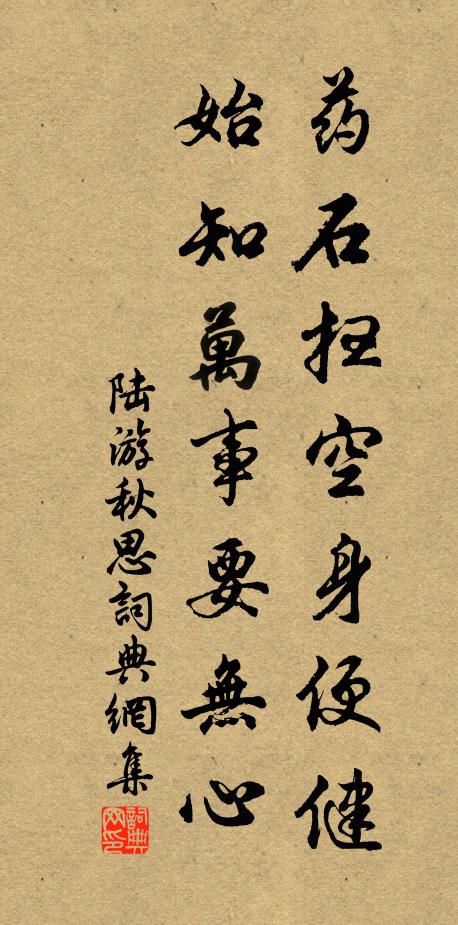 药石扫空身便健
始知萬事要無心
陆游秋思詞典網集
詞典網印